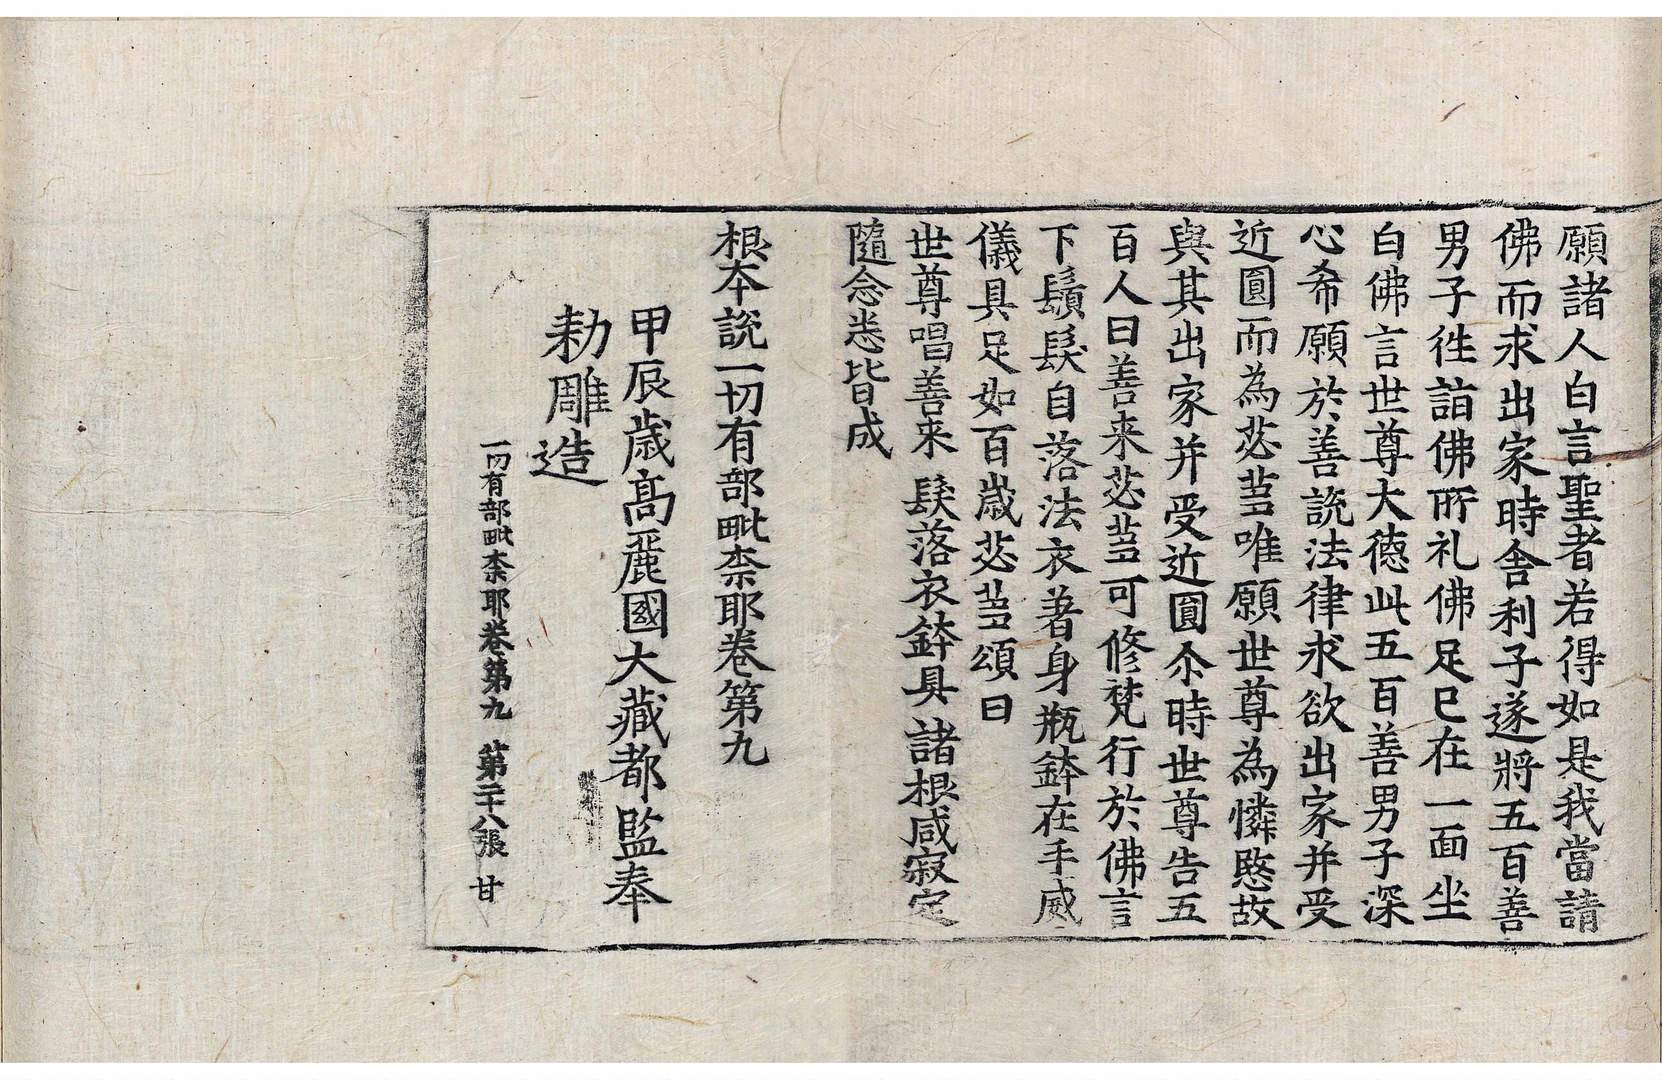 願諸人白言聖者若得如是我當請
佛而求出家時舍利子遂將五百善
男子徃詣佛所礼佛足已在一面坐
白佛言世尊大德此五百善男子深
心希願於善說法律求欲出家并受
近圓而為苾蒭唯願世尊為憐愍故
與其出家并受近圓尒時世尊告五
百人曰善来苾蒭可修梵行於佛言
下鬚髮自落法衣著身瓶鉢在手威
儀具足如百歲苾蒭頌曰
世尊唱善来 髮落衣鉢具 諸根咸寂定
隨念悉皆成
根本說一切有部毗柰耶卷第九
甲辰歲高麗國大藏都監奉
勑雕造
一切有部毗柰耶卷第九 第二十八張 甘